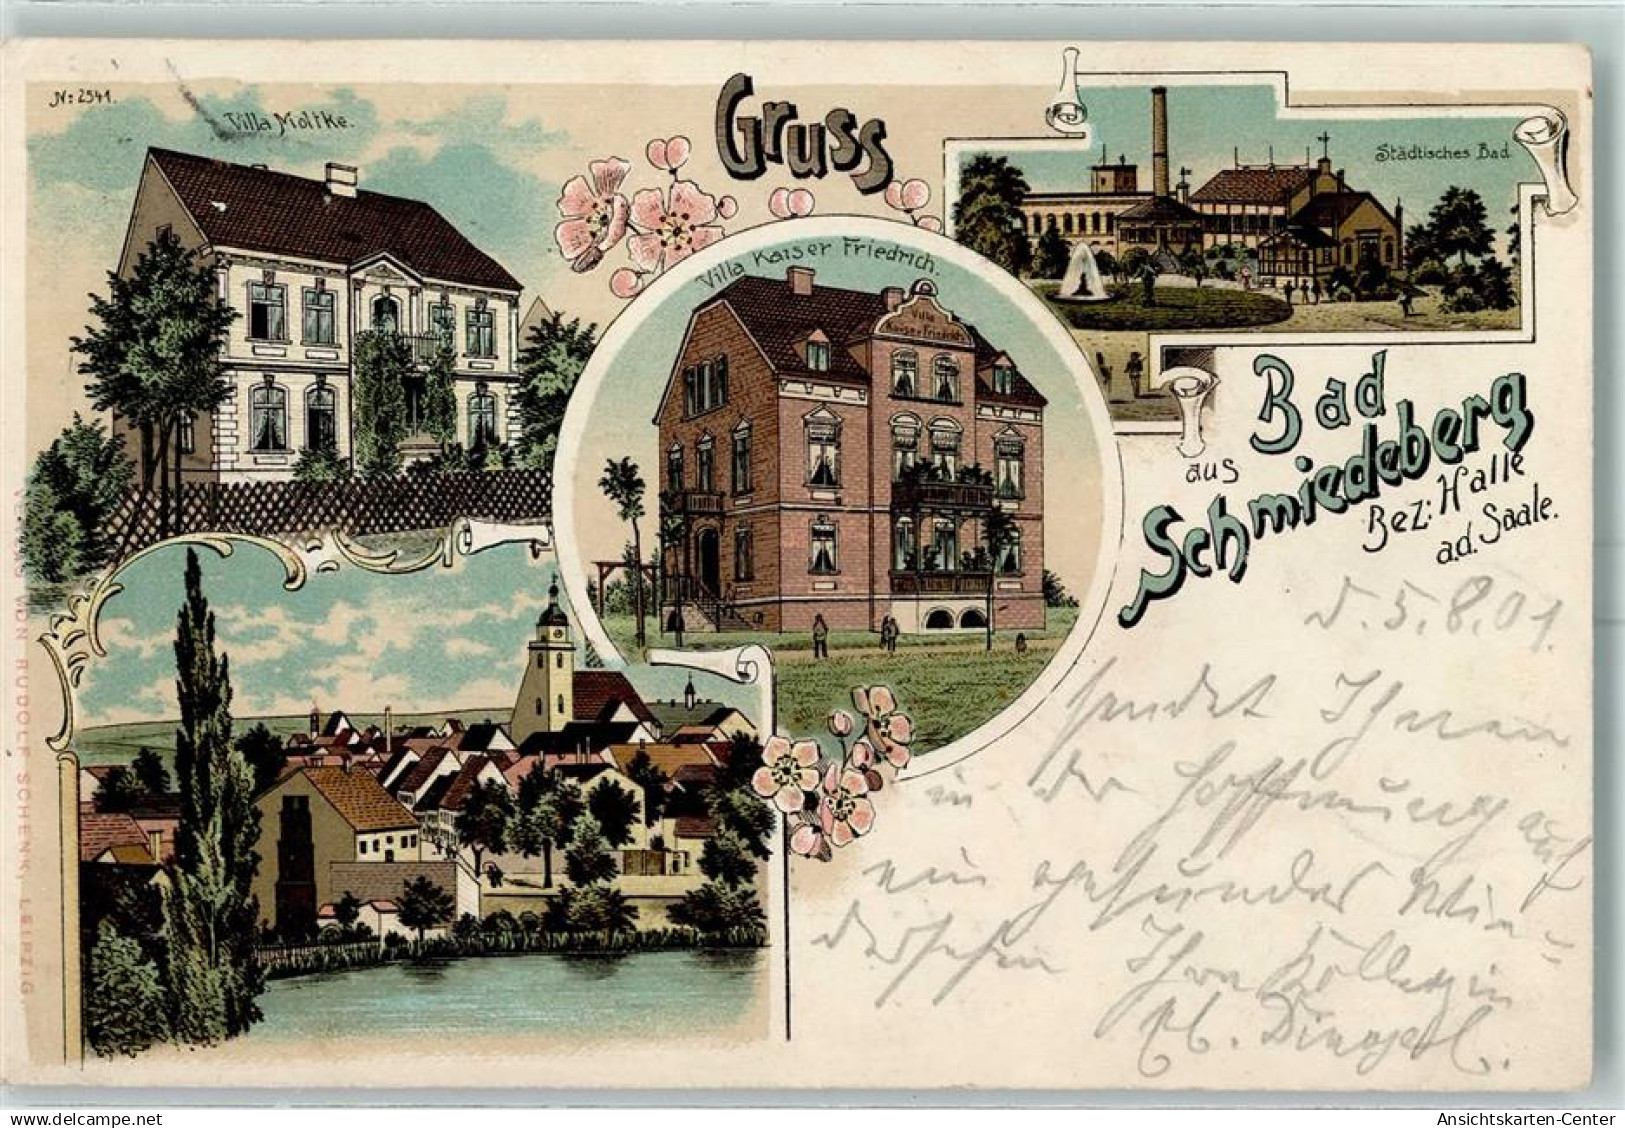 N: 2541.
Villa Moltke.
Gruss
Städtisches Bad.
Villa Kaiser Friedrich.
Villa
Kaiser Friedrich
aus
Bad
Schmiedeberg
Bez: Halle
a.d. Saale.
VERLAG VON RUDOLF SCHENK, LEIPZIG.
d. 5.8.01.
sendet Ihnen
in der Hoffnung auf
ein gesundes Wie-
dersehen Ihre Kollegin
Ansichtskarten-Center